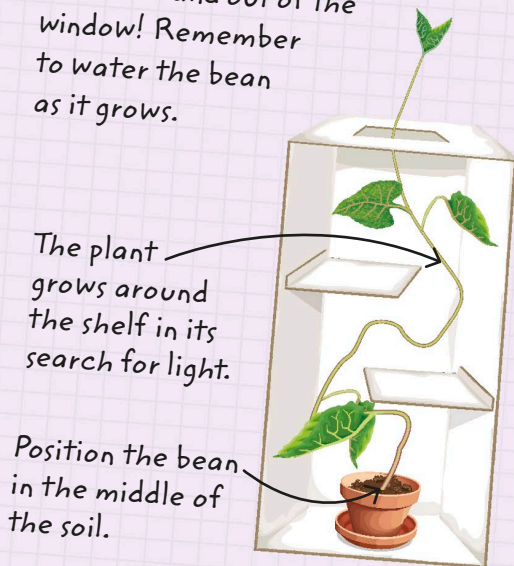 and out of the
window! Remember
to water the bean
as it grows.
The plant
grows around
the shelf in its
search for light.
Position the bean
in the middle of
the soil.